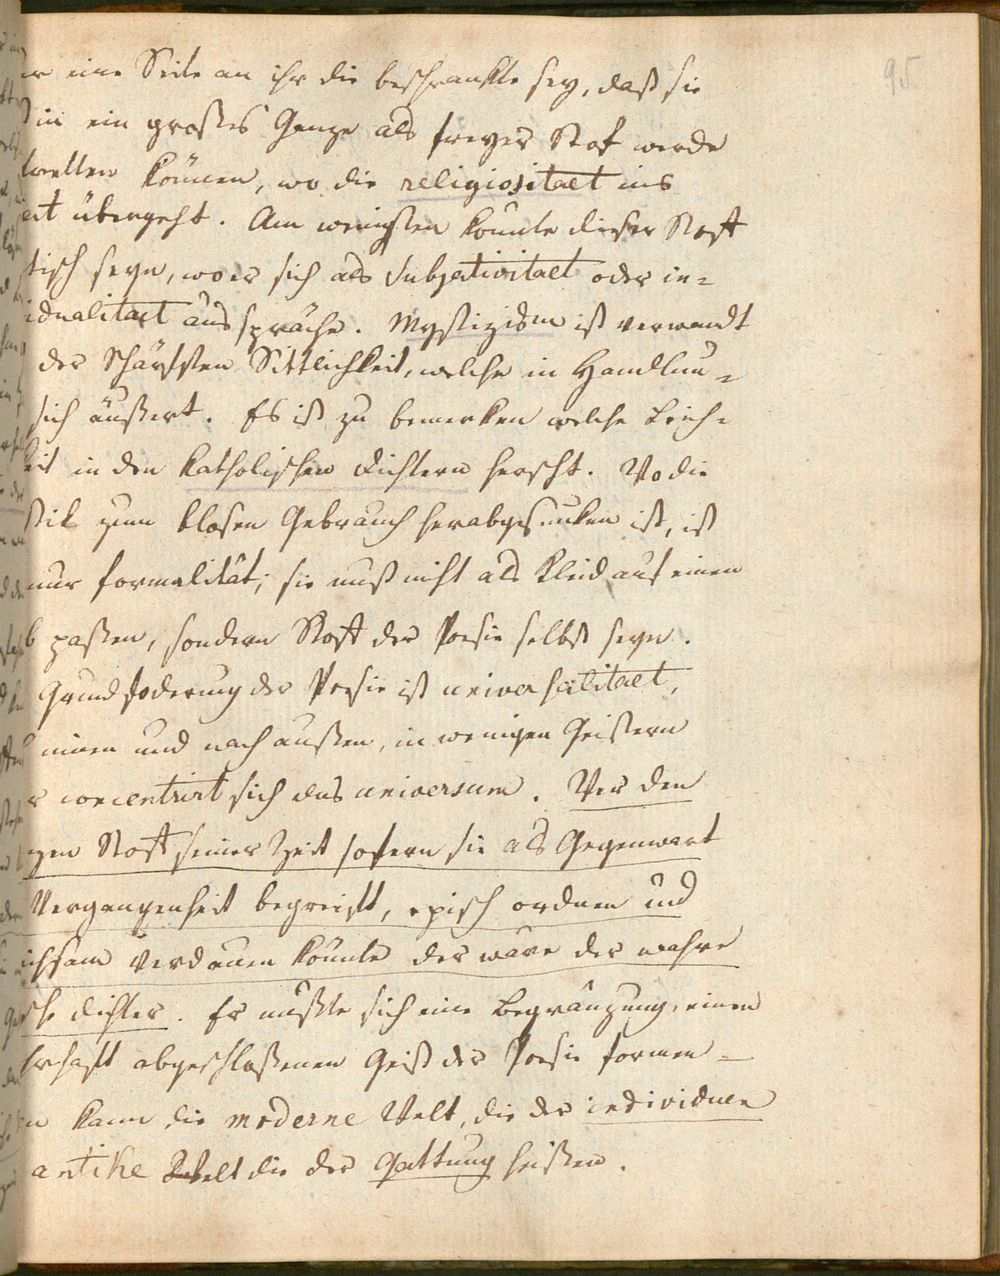 95
eine Seite an ihr die beschrankte sey, daß sie
in ein großes Ganze als freyer Stof werde
können, wo die religiositaet ins
übergeht. Am wenigsten könnte dieser Stoff
tisch seyn, wo er sich als Subjectivitaet oder in=
idualitaet ausspräche. Mystizism ist verwandt
der schärfsten Sittlichkeit, welche in Handlun=
sich äußert. Es ist zu bemerken welche
in den katholischen Dichtern herscht. Wo die
stik zum blosen Gebrauch herabgesunken ist, ist
nur formalität; sie muß nicht als Kleid auf einen
b paßen, sondern Stoff der Poesie selbst seyn.
Grundfoderung der Poesie ist universalitaet,
innen und nach außen, in wenigen Geistern
r concentrirt sich das universum. Wer den
zen Stoff seiner Zeit sofern sie als Gegenwart
Vergangenheit begreift, episch ordnen und
ichsam verdauen könnte der wäre der wahre
sche dichter. Es mußte sich eine Begränzung, einen
rhaft abgeschloßenen Geist der Poesie formen –
n kann die moderne Welt, die der individuen
antike Welt die der Gattung heißen.